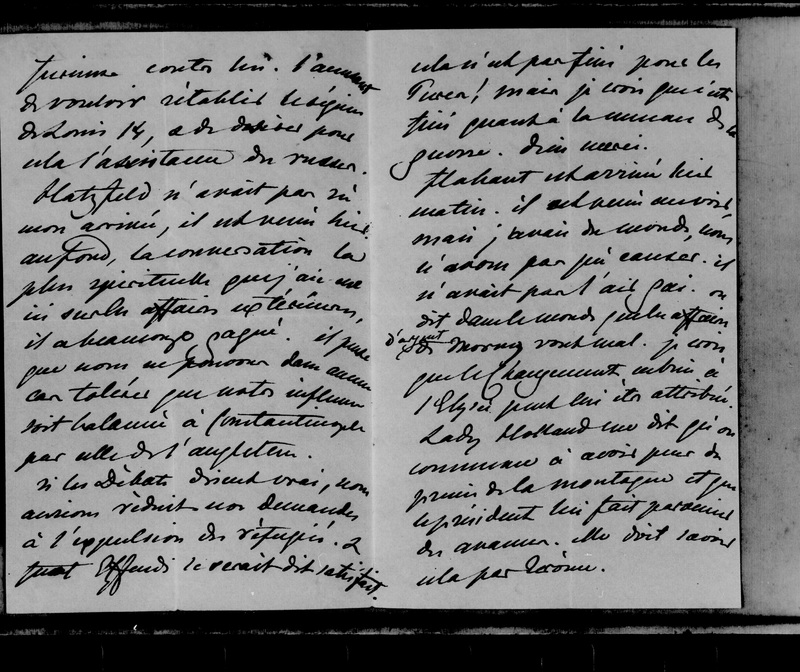 furieux contre lui. l'accusent
de vouloir rétablir le régime
de Louis 14, & de désirer pour
cela l'assistance du russe.
Hatzfeld n'avait pas su
mon arrivée, il est venu hier.
au fond, la conversation la
plus spirituelle que j'aie eue
ici sur les affaires extérieures,
il a beaucoup gagné. il pense
que nous ne pouvons dans aucun
cas tolérer que notre influence
soit balancée à Constantinople
par celle de l'angleterre.
si les Débats disent vrai, nous
aurions réduit nos demandes
à l'expulsion des réfugiés. &
Effendi se serait dit satisfait.
cela n'est pas fini pour les
Turcs! mais je crois que c'est
fini quant à la menace de la
guerre. Dieu merci.
Flahaut est arrivé hier
matin. il est venu me voir,
mais j'avais du monde, nous
n'avons pas pu causer. il
n'avait pas l'air gai. on
dit dans le monde que les affaires
d'argent de Morny vont mal. je crois
que le changement même à
l'Elysée peut lui être attribué.
Lady Holland me dit qu'on
commence à avoir peur du
procès de la montagne et que
le président lui fait parvenir
des avances. elle doit savoir
cela par Jérome.